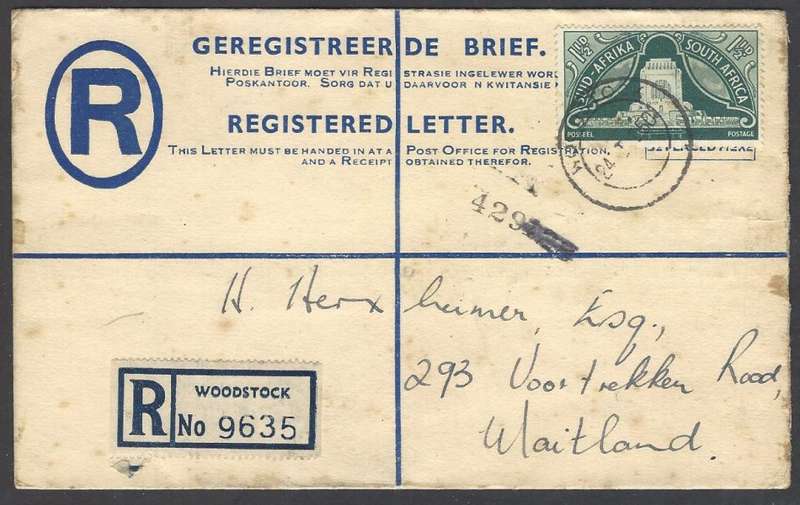 R
GEREGISTREERDE BRIEF.
HIERDIE BRIEF MOET VIR REGISTRASIE INGELEWER
POSKANTOOR. SORG DAT U DAARVOOR 'N KWITANSIE
REGISTERED LETTER.
THIS LETTER MUST BE HANDED IN AT A POST OFFICE FOR REGISTRATION,
AND A RECEIPT OBTAINED THEREFOR.
1½D 1½D
SUID-AFRIKA SOUTH AFRICA
POSSEËL POSTAGE
24
429
H. Herxheimer, Esq.,
293 Voortrekker Road,
Maitland.
R WOODSTOCK
No 9635